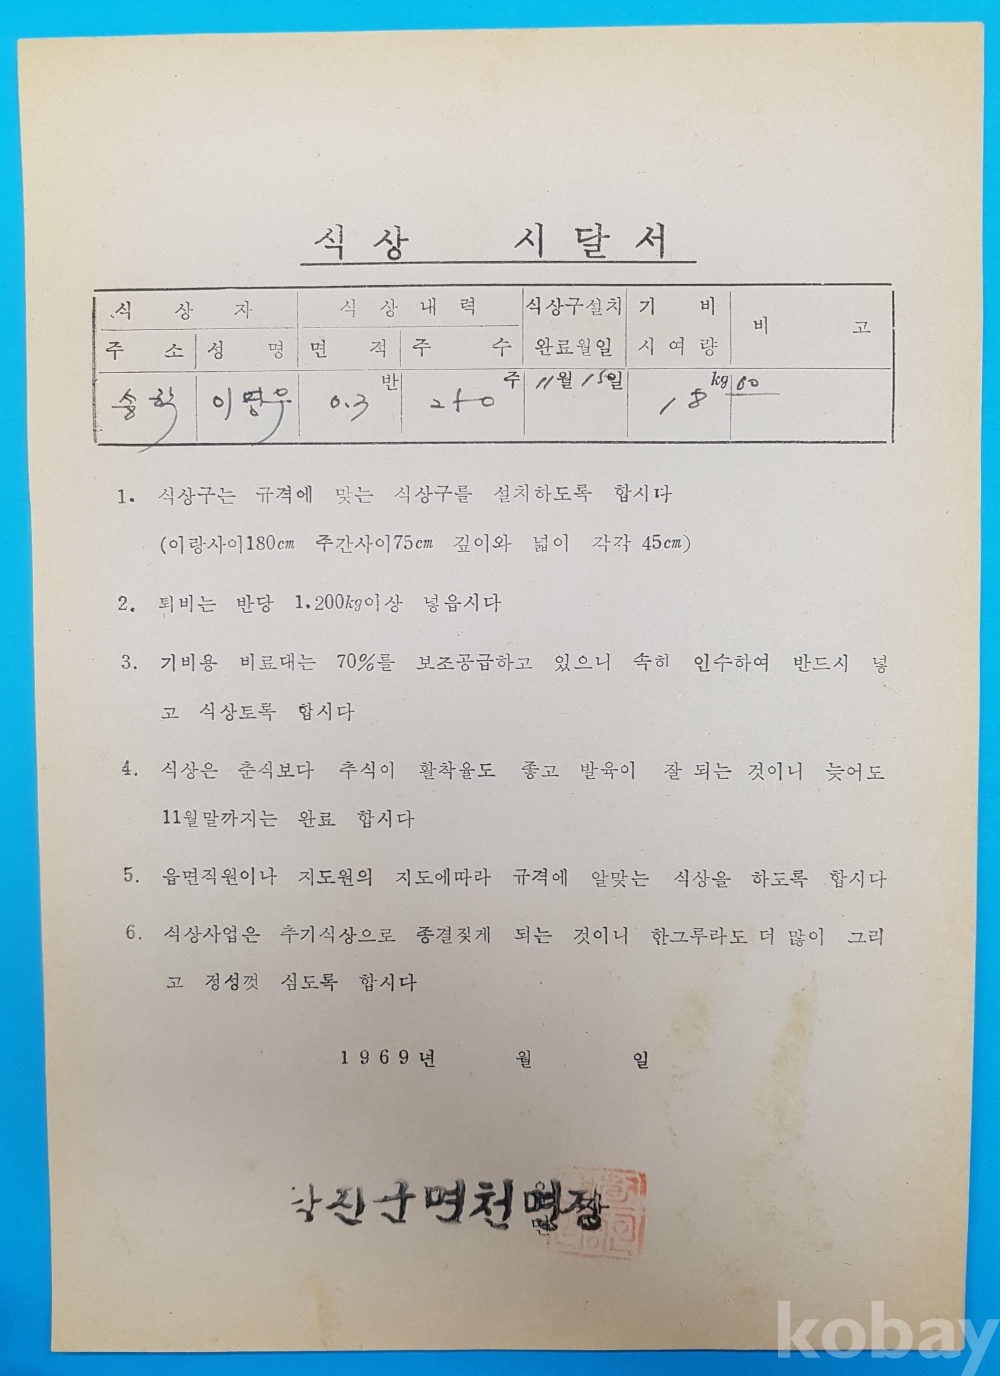 식상 시달서
식 상 자 식 상 내 력 식상구설치 기 비 비 고
주 소 성 명 면 적 주 수 완료월일 시 여 량
송학 이명우 0.3반 250주 11월 15일 18kg 00
1. 식상구는 규격에 맞는 식상구를 설치하도록 합시다
(이랑사이180cm 주간사이75cm 깊이와 넓이 각각 45cm)
2. 퇴비는 반당 1.200kg이상 넣읍시다
3. 기비용 비료대는 70%를 보조공급하고 있으니 속히 인수하여 반드시 넣
고 식상토록 합시다
4. 식상은 춘식보다 추식이 활착율도 좋고 발육이 잘 되는 것이니 늦어도
11월말까지는 완료 합시다
5. 읍면직원이나 지도원의 지도에따라 규격에 알맞는 식상을 하도록 합시다
6. 식상사업은 추기식상으로 종결짖게 되는 것이니 한그루라도 더 많이 그리
고 정성껏 심도록 합시다
1969년 월 일
당진군면천면장
kobay